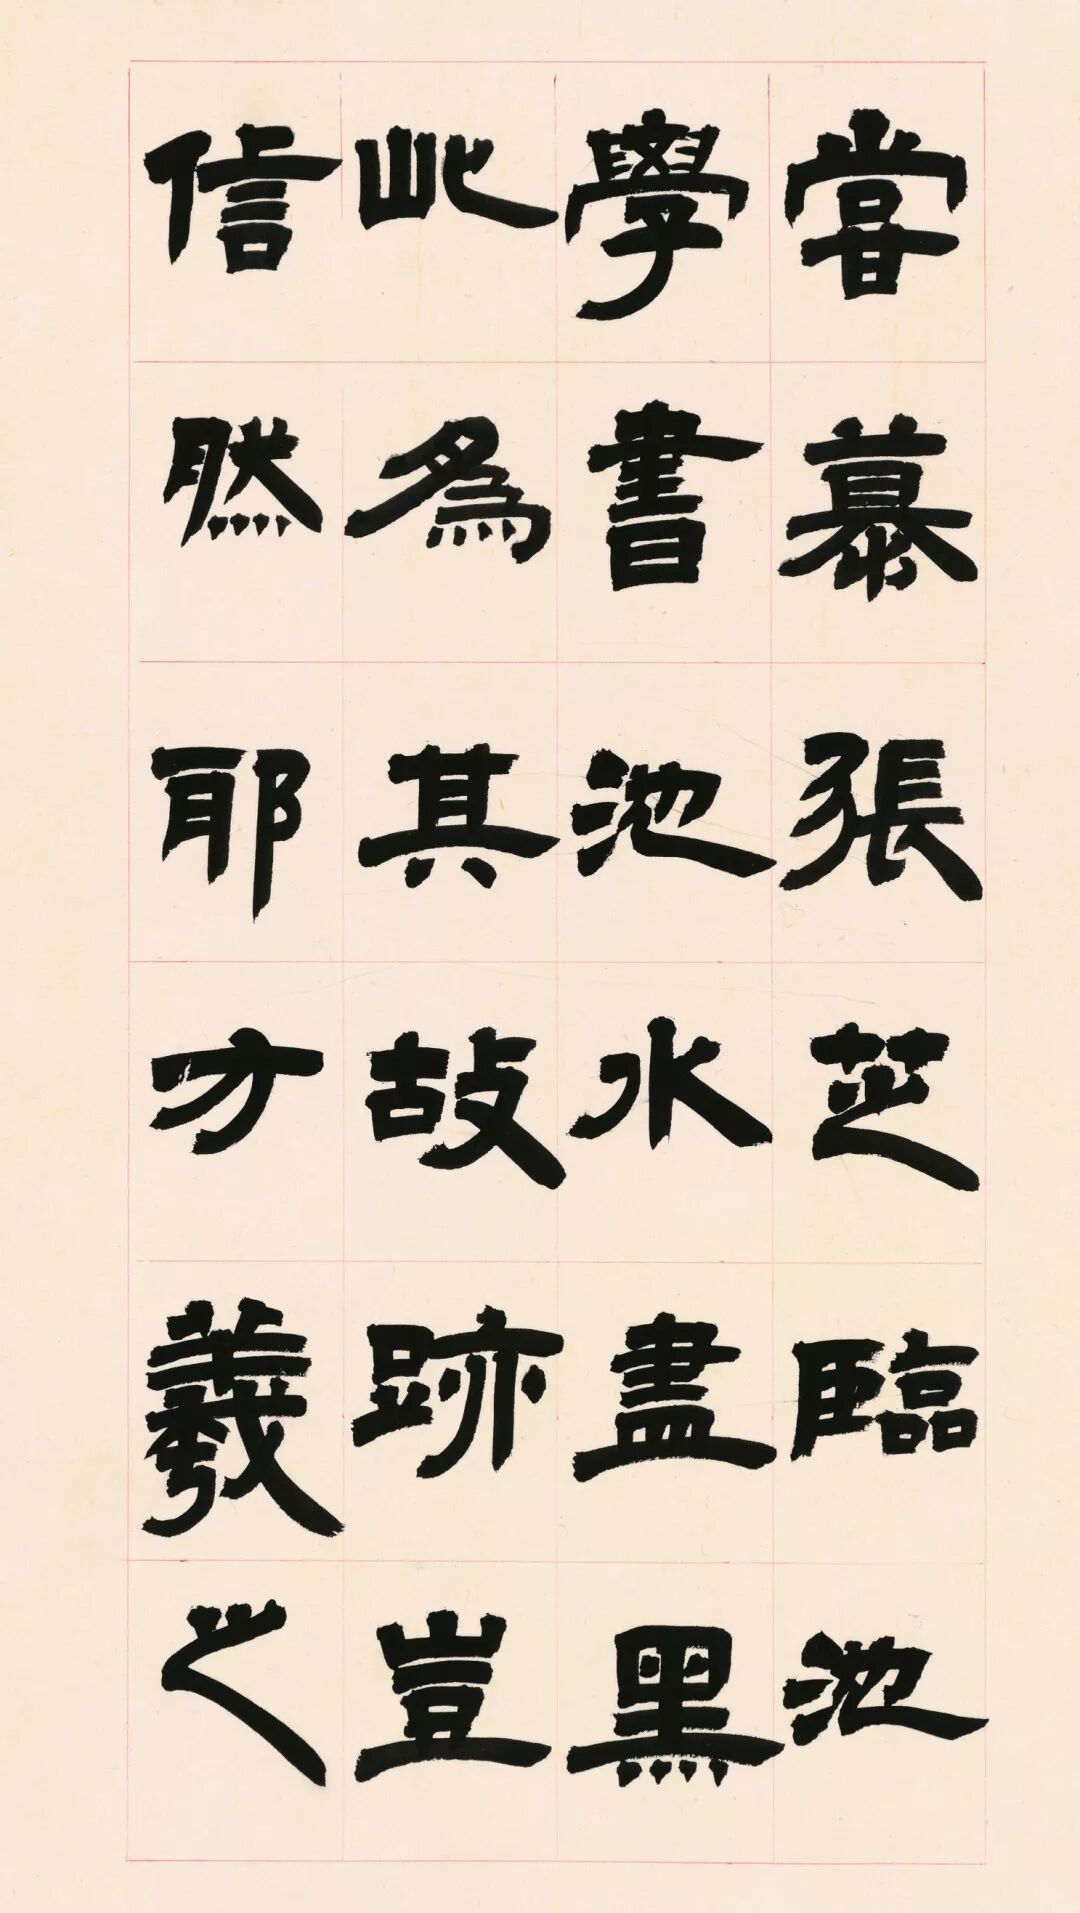 嘗慕張芝臨池
學書池水盡黑
此為其故跡豈
信然耶方羲之